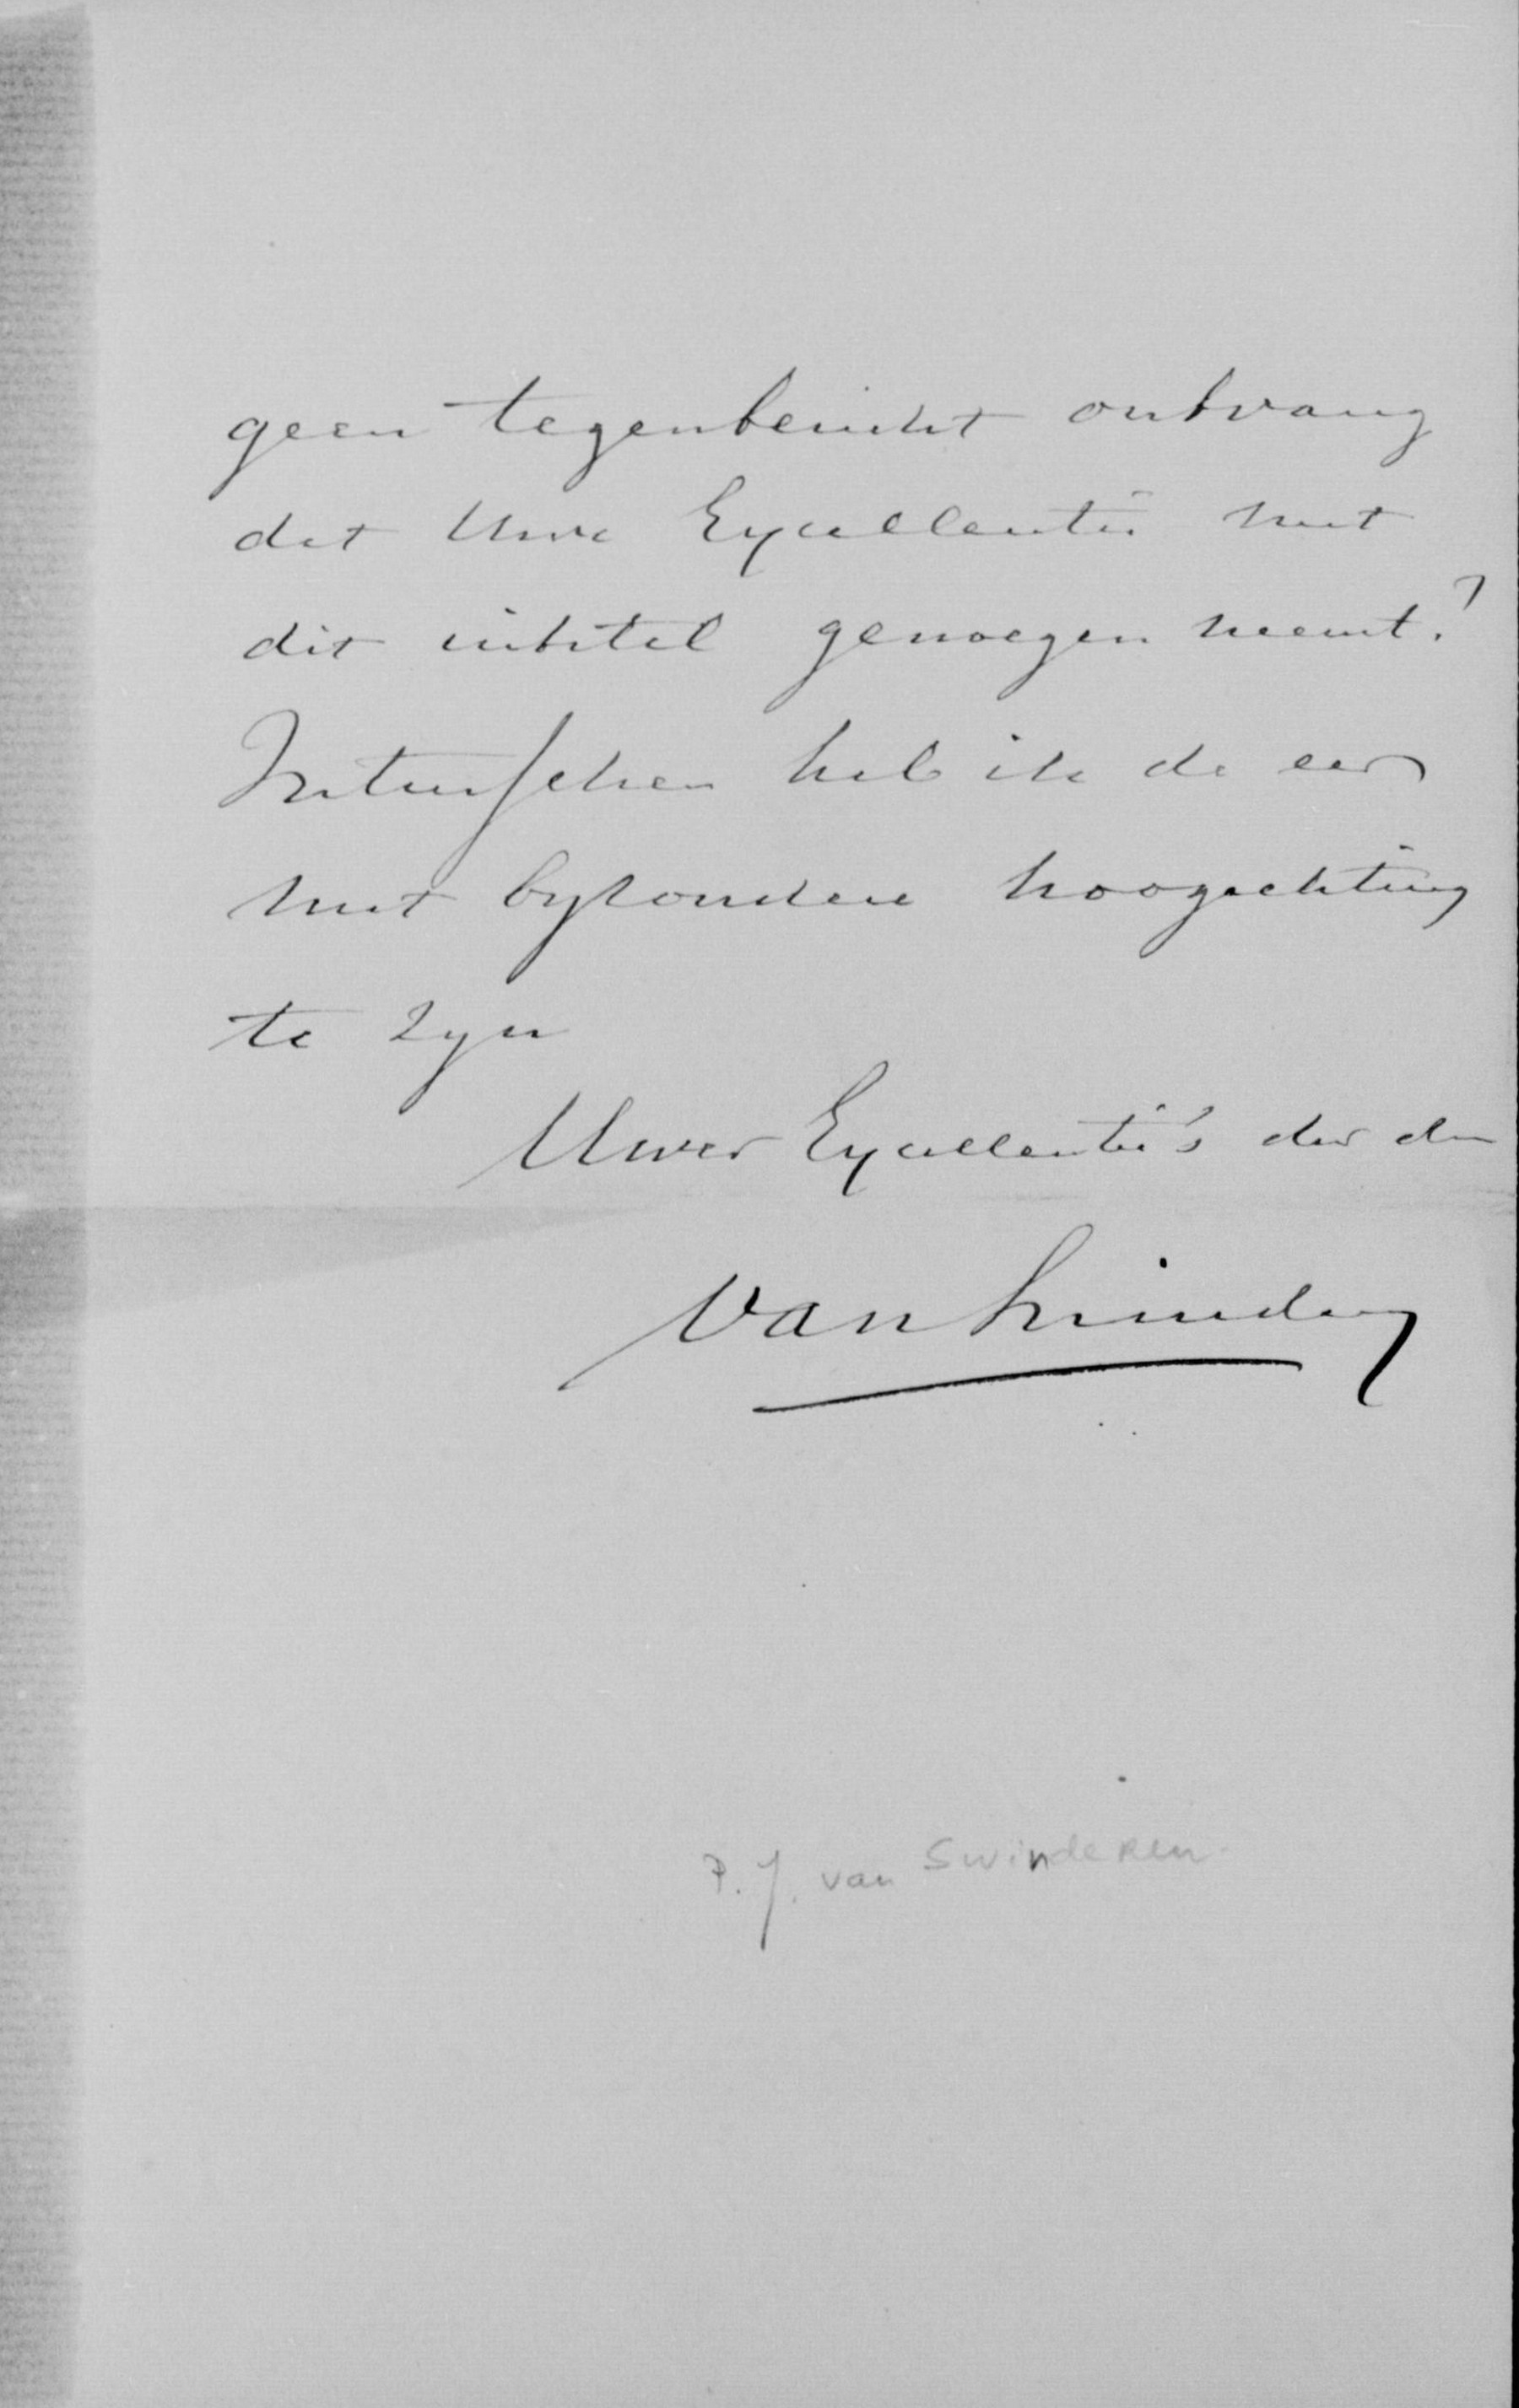 geen tegenbericht ontvang
dat Uwe Excellentie met
dit uitstel genoegen neemt?
Intusschen heb ik de eer
met byzondere hoogachting
te zyn
Uwer Excellentie's dw dn
van Swinderen
P. J. van Swinderen.